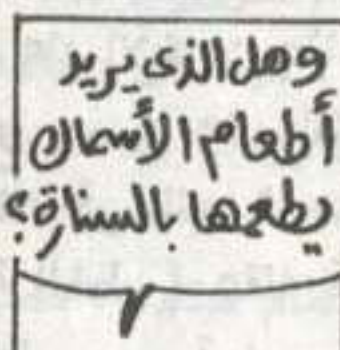 وهل الذى يريد
أطعام الأسماك
يطعمها بالسنارة؟